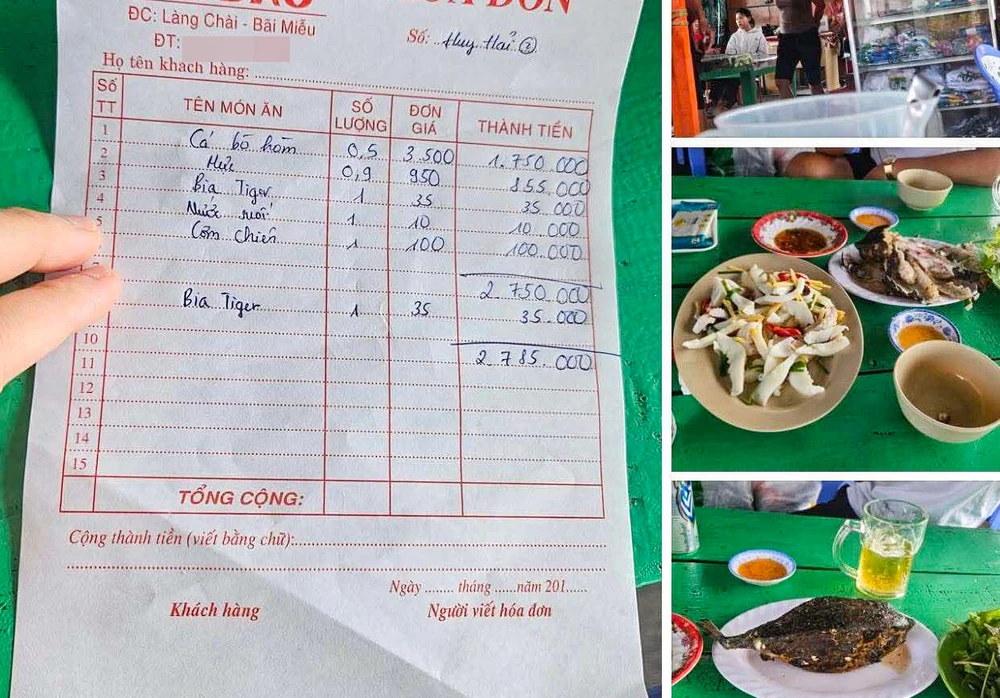 HÓA ĐƠN
ĐC: Làng Chài - Bãi Miễu
ĐT:
Số: Huy Hai ②
Họ tên khách hàng:
Số TT TÊN MÓN ĂN SỐ LƯỢNG ĐƠN GIÁ THÀNH TIỀN
1 Cá bò hòm 0,5 3.500 1.750.000
2 Mực 0,9 950 855.000
3 Bia Tiger 1 35 35.000
4 Nước suối 1 10 10.000
5 Cơm chiên 1 100 100.000
2.750.000
Bia Tiger 1 35 35.000
10
11 2.785.000
12
13
14
15
TỔNG CỘNG:
Cộng thành tiền (viết bằng chữ):
Ngày ........ tháng ......năm 201......
Khách hàng Người viết hóa đơn